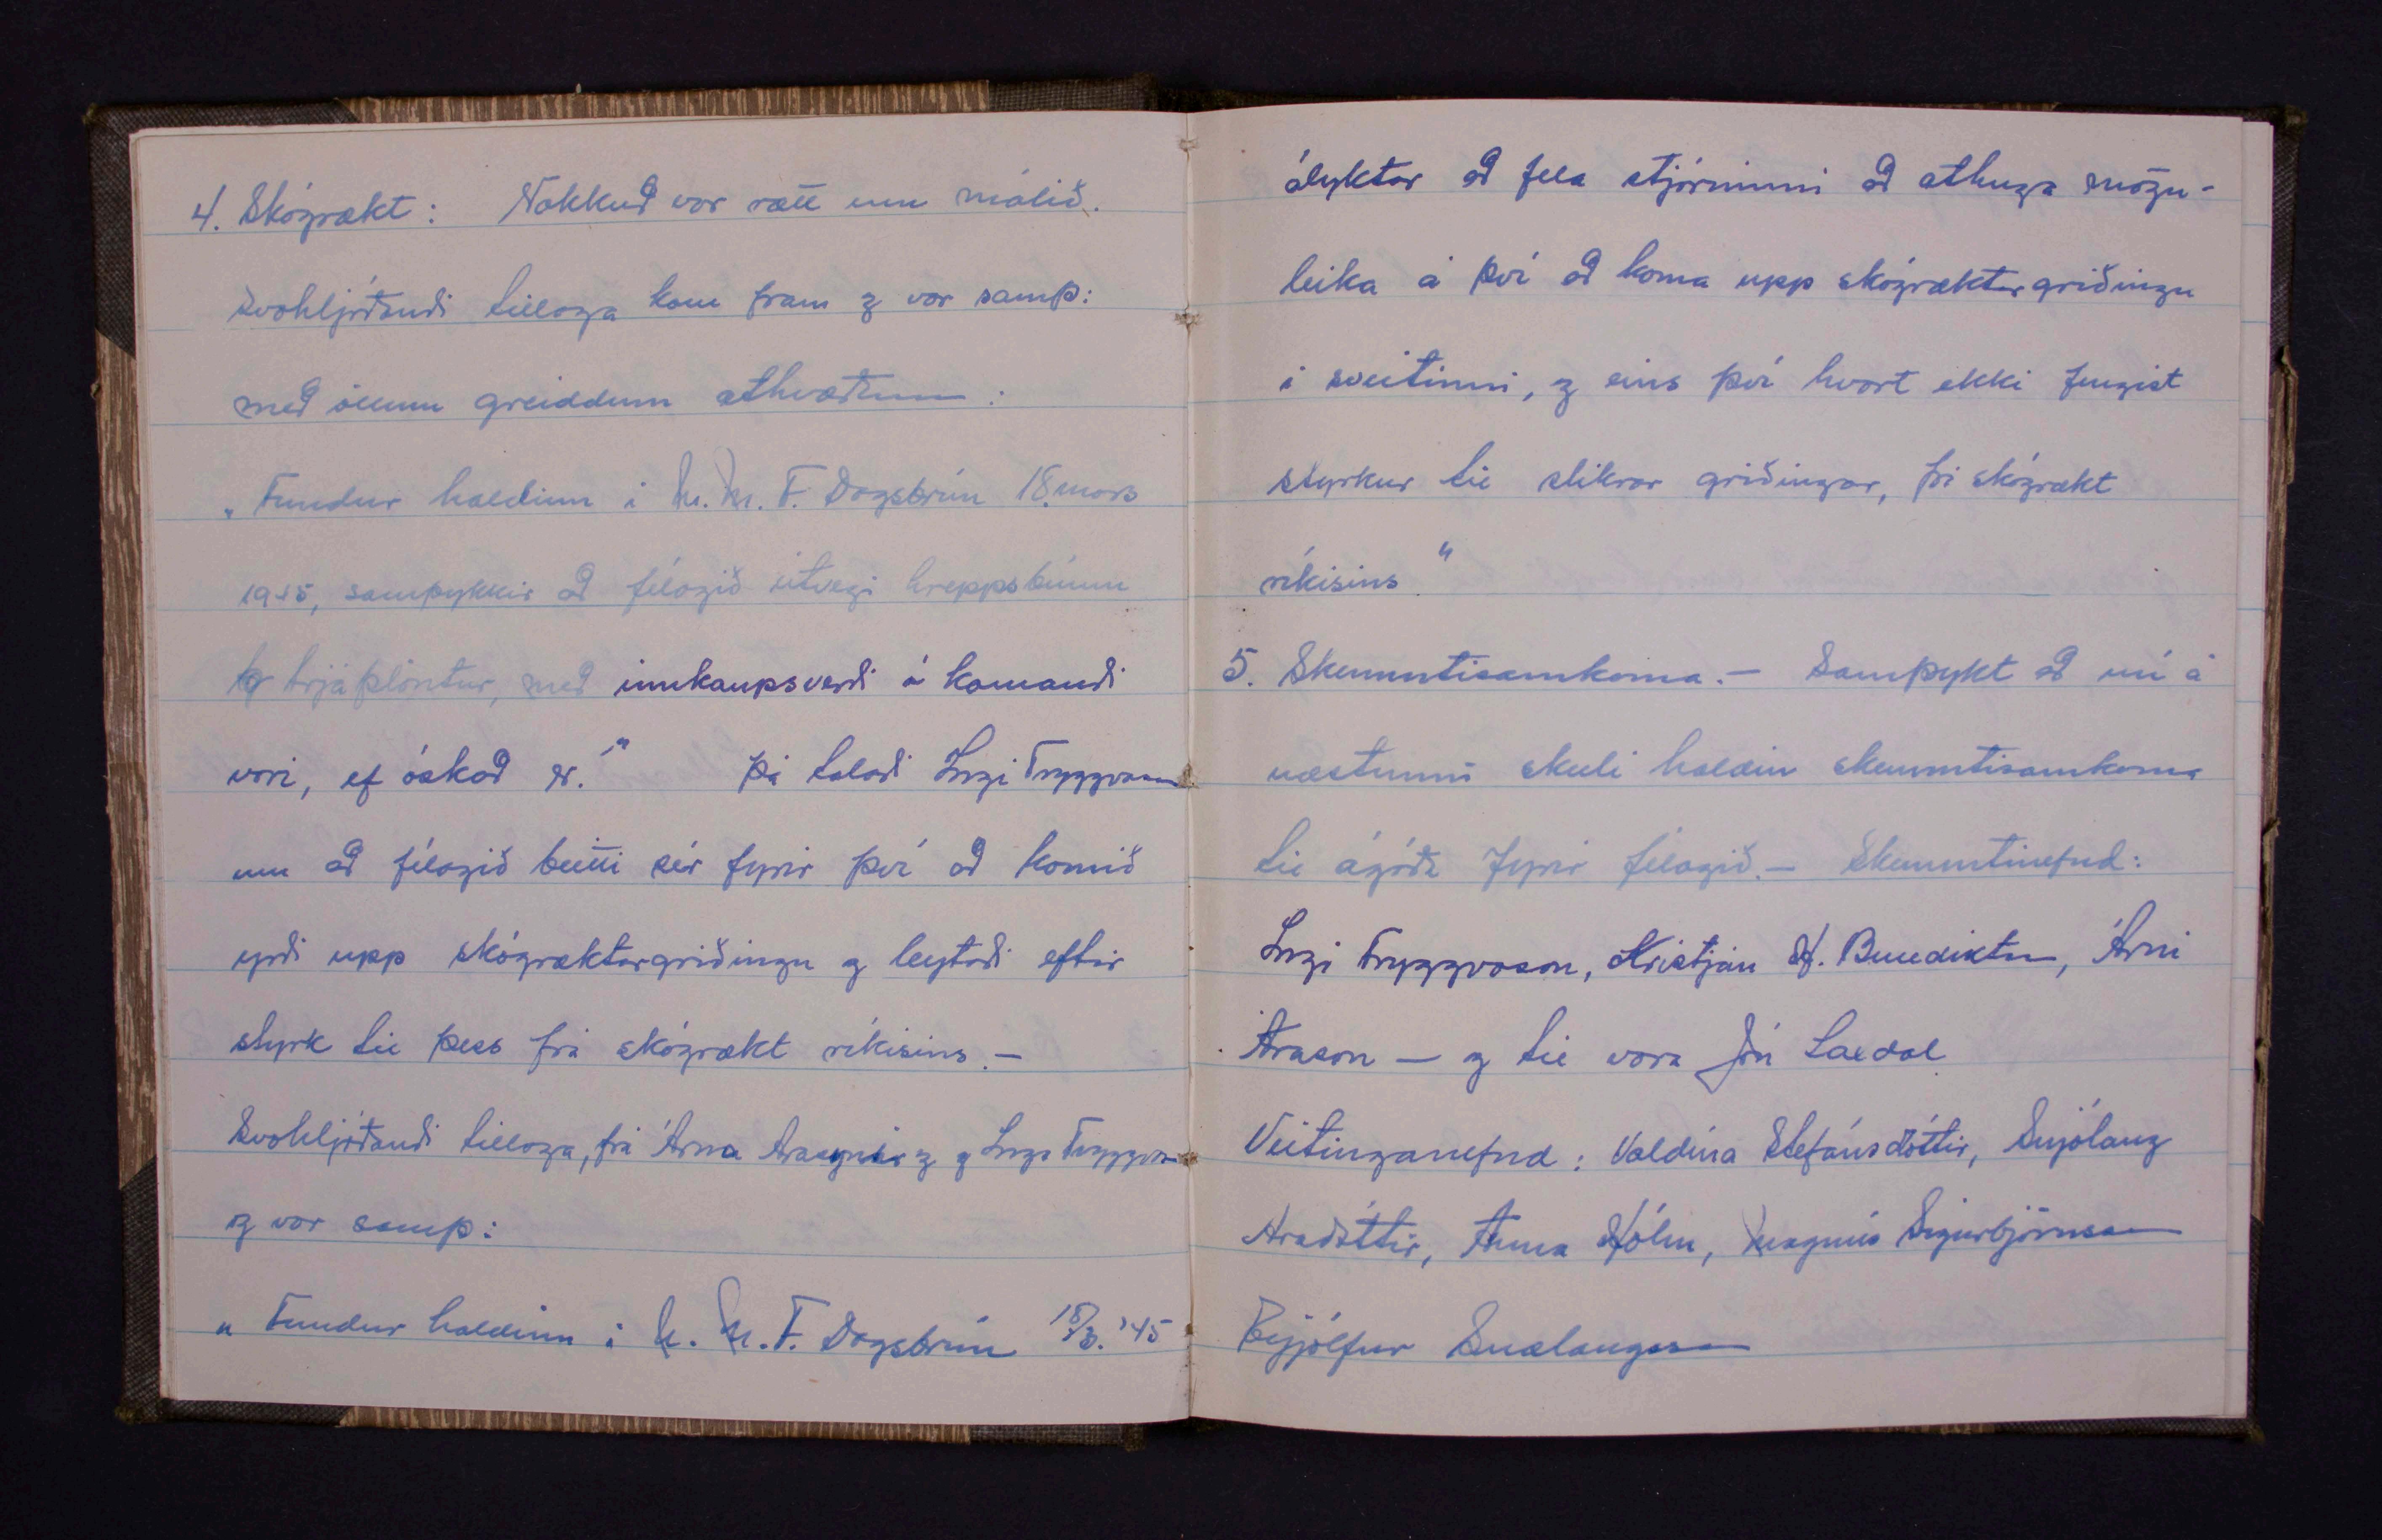 4. Skógrækt: Nokkuð var rætt um málið.
Svohljóðandi tillaga kom fram og var samþ:
með öllum greiddum athvæðum:
„Fundur haldinn í U. M. F. Dagsbrún 18. mars
1945, samþykkir að félagið útvegi hreppsbúum
trjáplöntur, með innkaupsverði á komandi
vori, ef óskað er.“ Þá talaði Ingi Tryggvason
um að félagið beitti sér fyrir því að komið
yrði upp skógræktargirðingu og leytaði eftir
styrk til þess frá skógrækt ríkisins. –
Svohljóðandi tillaga, frá Árna Arasyni og Inga Tryggvas
og var samþ:
„Fundur haldinn í U. M. F. Dagsbrún 18/3. '45
ályktar að fela stjórninni að athuga mögu-
leika á því að koma upp skógræktargriðingu
í sveitinni, og eins því hvort ekki fengist
styrkur til slíkrar griðingar, frá skógrækt
ríkisins“
5. Skemmtisamkoma. – Samþykt að nú á
næstunni skuli haldin skemmtisamkoma
til ágóða fyrir félagið. – Skemmtinefnd:
Ingi Tryggvason, Kristján H. Benediktsson, Árni
Arason – og til vara Jón Laxdal
Veitinganefnd: Valdína Stefánsdóttir, Snjólaug
Aradóttir, Anna Hólm, Magnús Sigurbjörnsson
Eyjólfur Snælaugsson